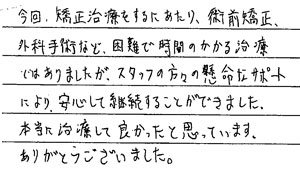 今回、矯正治療をするにあたり、術前矯正、
外科手術など、困難で時間のかかる治療
ではありましたが、スタッフの方々の懸命なサポート
により、安心して継続することができました。
本当に治療して良かったと思っています。
ありがとうございました。